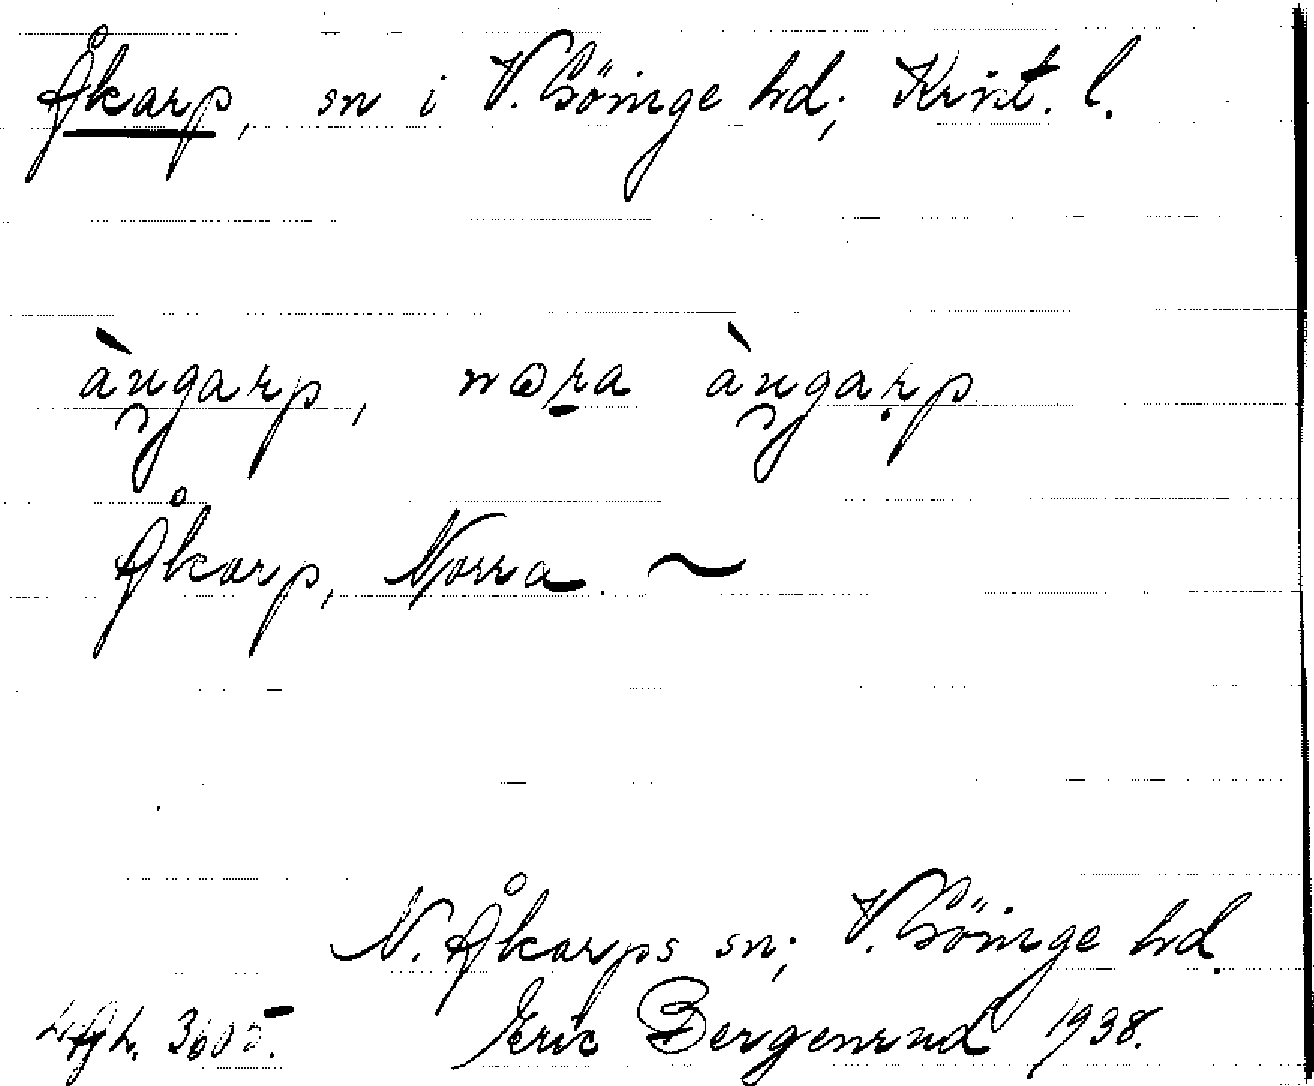 Åkarp, sn i V. Göinge hd; Krist. l.
àu̯garp, nꙩra àu̯garp
Åkarp, Norra ~
N. Åkarps sn; V. Göinge hd.
Eric Bergenrud 1938.